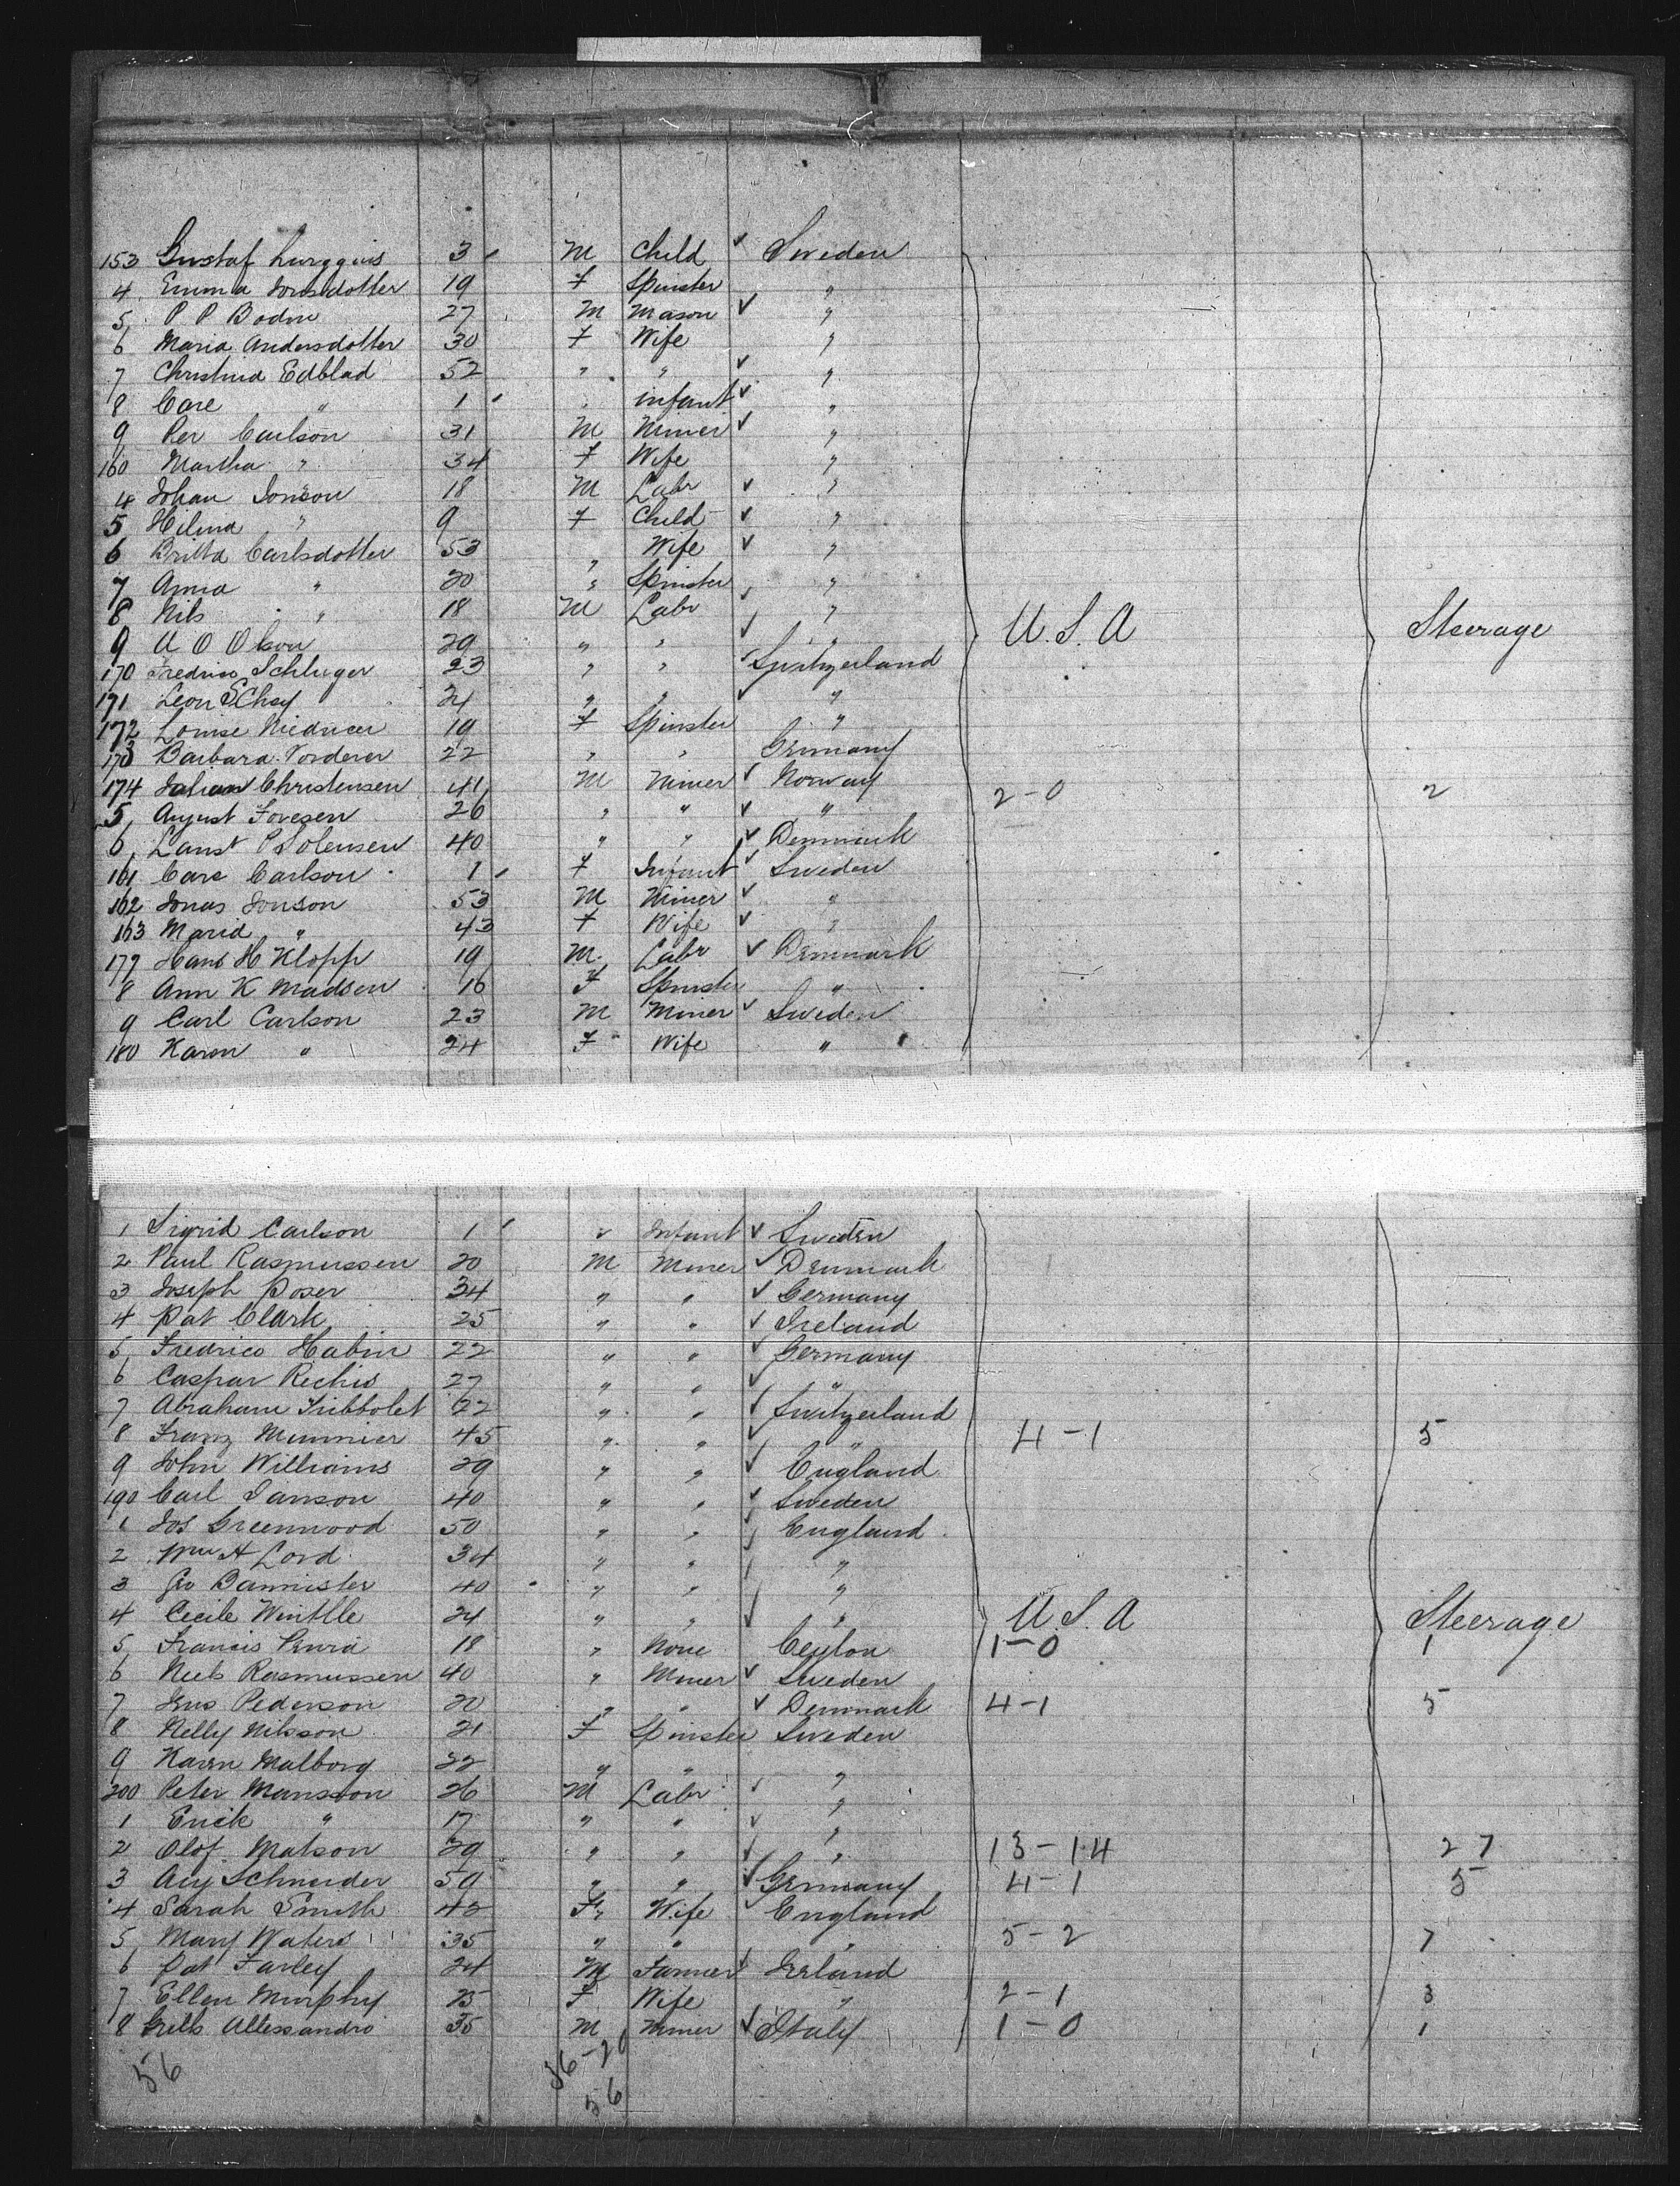 153 Gustaf Lurgquis 3 M Child ✓ Sweden
4 Emma Jonsdotter 19 F Spinster "
5 P P Bodin 27 M Mason ✓ "
6 Maria Andersdotter 30 F Wife "
7 Christina Edblad 52 " " ✓ "
8 Care " 1 " infant ✓ "
9 Per Carlson 31 M Miner ✓ "
160 Martha " 34 F Wife "
4 Johan Jonson 18 M Labr ✓ "
5 Hilma " 9 F Child ✓ "
6 Britta Carlsdotter 53 " Wife ✓ "
7 Anna " 20 " Spinster "
8 Nils " 18 M Labr ✓ " U.S.A Steerage
9 A O Olson 29 " " ✓ "
170 Fredrico Schluger 23 " " ✓ Switzerland
171 Leon Schey 21 " " ✓ "
172 Louise 19 F Spinster "
173 Barbara Vorderer 22 " " Germany
174 Johan Christensen 41 M Miner ✓ Norway 2-0 2
5 August Foresen 26 " " ✓ "
6 Laust P Solensen 40 " " ✓ Denmark
161 Care Carlson 1 F Infant ✓ Sweden
162 Jonas Jonson 53 M Miner ✓ "
163 Maria " 43 F Wife ✓ "
177 Hans H Klopp 19 M Labr ✓ Denmark
8 Ann K Madsen 16 F Spinster "
9 Carl Carlson 23 M Miner ✓ Sweden
180 Karen " 24 F Wife "
1 Sigrid Carlson 1 " Infant ✓ Sweden
2 Paul Rasmussen 20 M Miner ✓ Denmark
3 Joseph Poser 34 " " ✓ Germany
4 Pat Clark 25 " " ✓ Ireland
5 Fredrico Habin 22 " " ✓ Germany
6 Caspar Rechis 27 " " ✓ "
7 Abraham Tribbolet 22 " " ✓ Switzerland
8 Franz Munnier 45 " " ✓ " 4-1 5
9 John Williams 29 " " ✓ England
190 Carl Janson 40 " " ✓ Sweden
1 Jos Greenwood 50 " " ✓ England
2 Wm A Lord 34 " " ✓ "
3 Geo Bannister 40 " " ✓ "
4 Cecile Wintlle 24 " " ✓ " U.S.A Steerage
5 Francis 18 " None Ceylon 1-0 1
6 Neils Rasmussen 40 " Miner ✓ Sweden
7 Jens Pederson 20 " " ✓ Denmark 4-1 5
8 Nelly Nilsson 21 F Spinster Sweden
9 Karen Malborg 22 " " "
200 Peter Mansson 26 M Labr ✓ "
1 Erick " 17 " " ✓ "
2 Olof Matson 29 " " ✓ " 13-14 27
3 Aug Schneider 59 " " ✓ Germany 4-1 5
4 Sarah Smith 42 F Wife England
5 Mary Waters 35 " " " 5-2 7
6 Pat Farley 24 M Farmer Ireland
7 Ellen Murphy 25 F Wife " 2-1 3
8 Allessandro 35 M Miner ✓ Italy 1-0 1
56 36-20
56